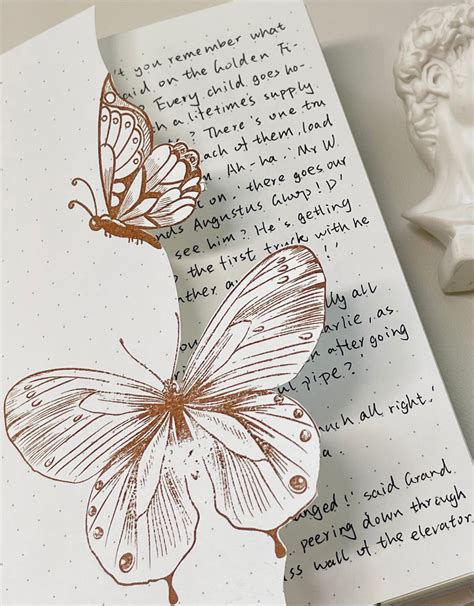 't you remember what
aid on the Golden Ti-
Every child goes ho-
h a lifetime's supply
? There's one tru
ach of them, load
n. Ah-ha,' Mr W.
on, 'there goes our
nds Augustus Gloop! D'
see him? He's getting
the first truck with he
ther a
lly all
arlie, as
n after going
ul pipe?'
uch all right,'
anged!' said Grand
peering down through
ss wall of the elevator.